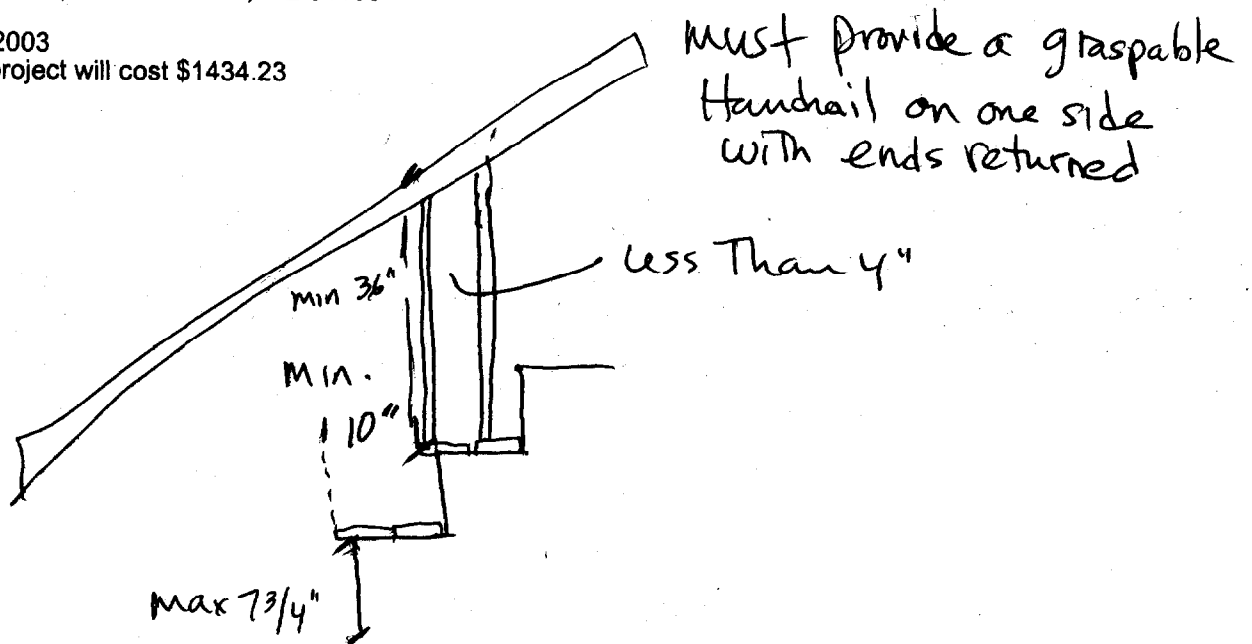 2003
project will cost $1434.23
must provide a graspable
Handrail on one side
with ends returned
Less Than 4"
min 36"
Min.
10"
max 7 3/4"